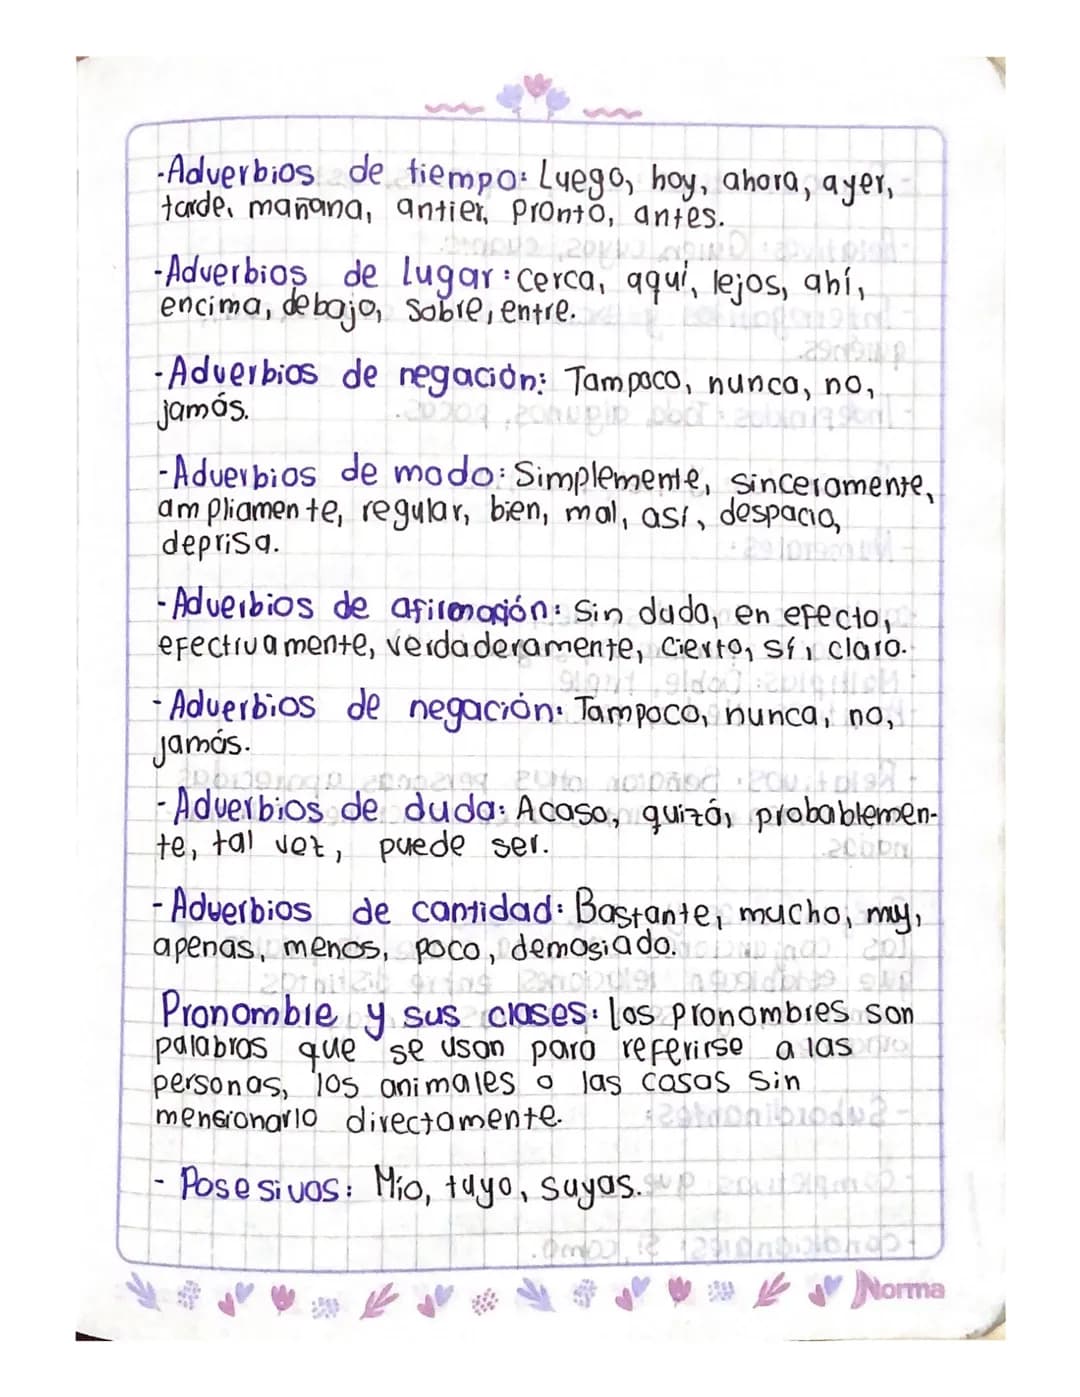 -Adverbios de tiempo: Luego, hoy, ahora, ayer,
tarde, mañana, antier, pronto, antes.
-Adverbios de lugar: cerca, aquí, lejos, ahí,
encima, debajo, sobre, entre.
-Adverbios de negación: Tampoco, nunca, no,
jamás.
-Adverbios de modo: Simplemente, sinceramente,
ampliamente, regular, bien, mal, así, despacio,
deprisa.
-Adverbios de afirmación: Sin duda, en efecto,
efectivamente, verdaderamente, cierto, sí, claro.
-Adverbios de negación: Tampoco, nunca, no,
jamás.
-Adverbios de duda: Acaso, quizá, probablemen-
te, tal vez, puede ser.
-Adverbios de cantidad: Bastante, mucho, my,
apenas, menos, poco, demasiado.
Pronombre y sus clases: los pronombres son
palabras que se usan para referirse a las
personas, los animales o las cosas sin
mensionarlo directamente.
- Posesivos: Mío, tuyo, suyas.
Norma